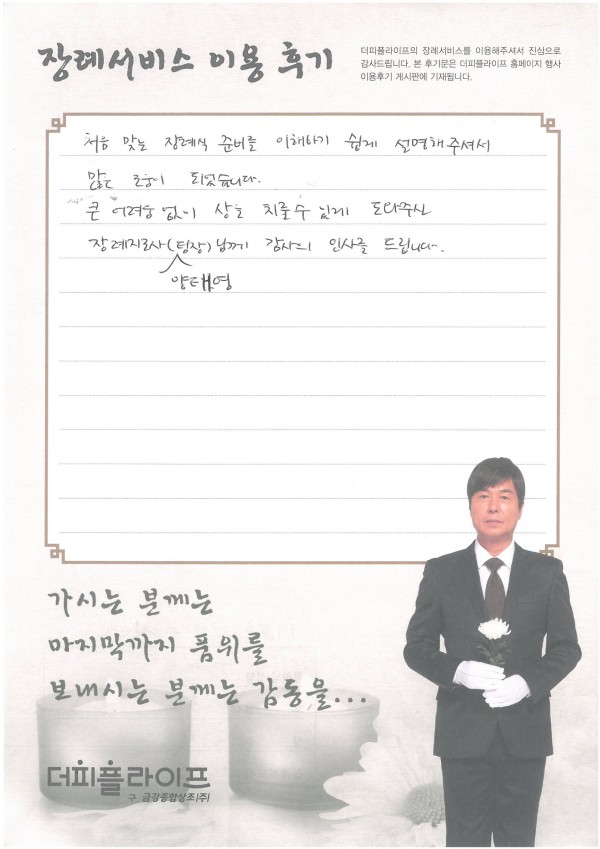 장례서비스 이용 후기
더피플라이프의 장례서비스를 이용해주셔서 진심으로
감사드립니다. 본 후기문은 더피플라이프 홈페이지 행사
이용후기 게시판에 기재됩니다.
처음 맞는 장례식 준비를 이해하기 쉽게 설명해주셔서
많은 도움이 되었습니다.
큰 어려움 없이 상을 치를수 있게 도와주신
장례지도사(팀장)님께 감사의 인사를 드립니다.
양태영
가시는 분께는
마지막까지 품위를
보내시는 분께는 감동을...
더피플라이프
구. 금강종합상조(주)